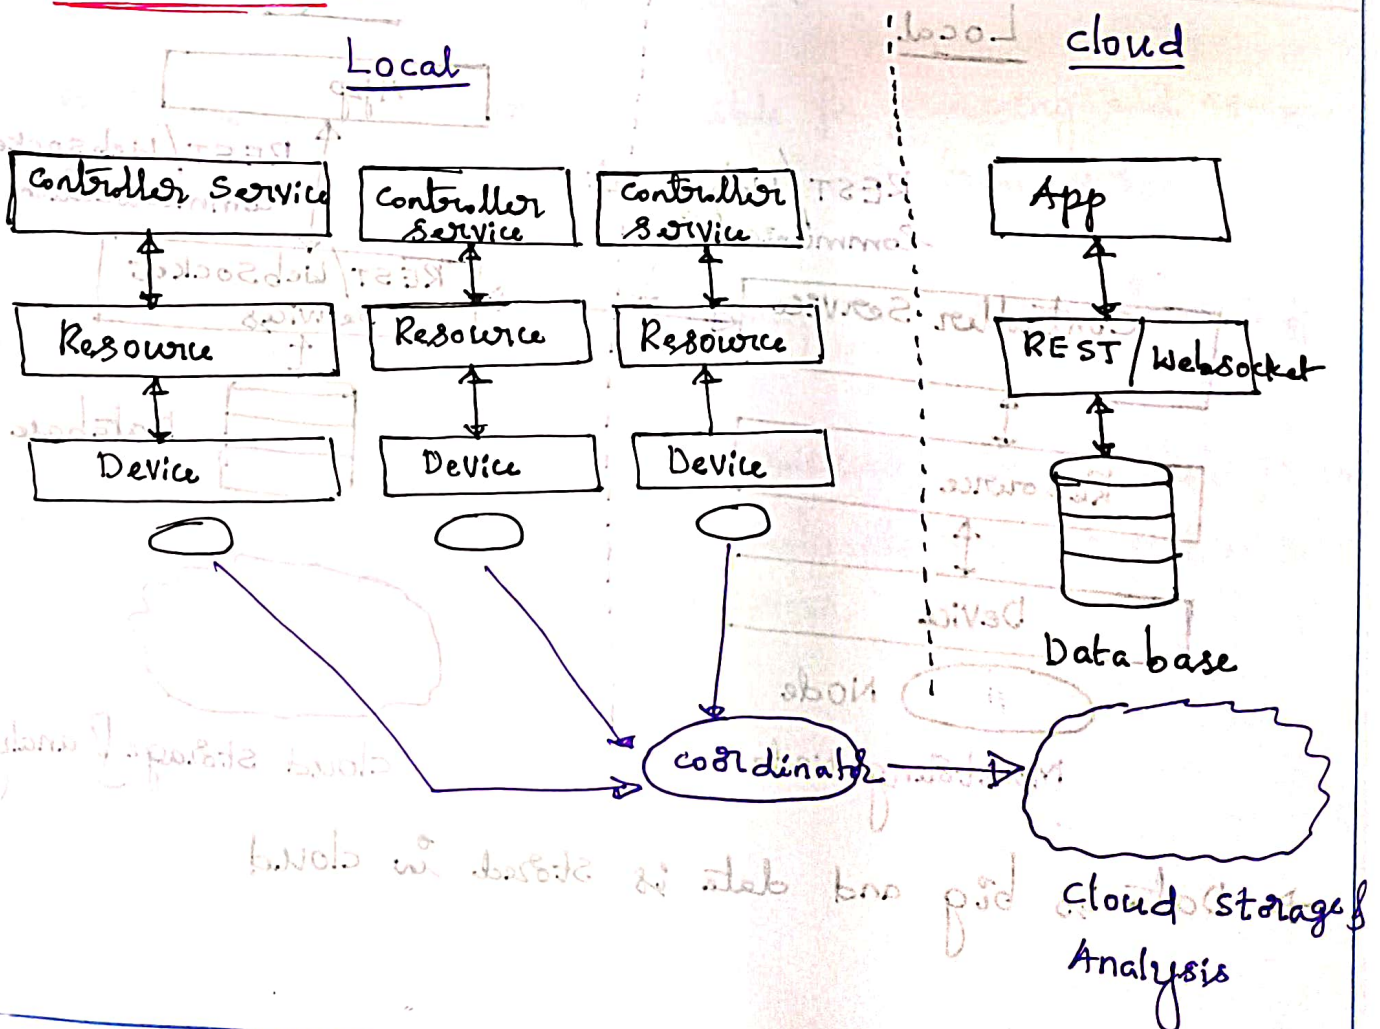 Local
cloud
Controller Service
Controller
Service
Controller
Service
App
Resource
Resource
Resource
REST / Websocket
Device
Device
Device
Database
coordinator
cloud storage &
Analysis